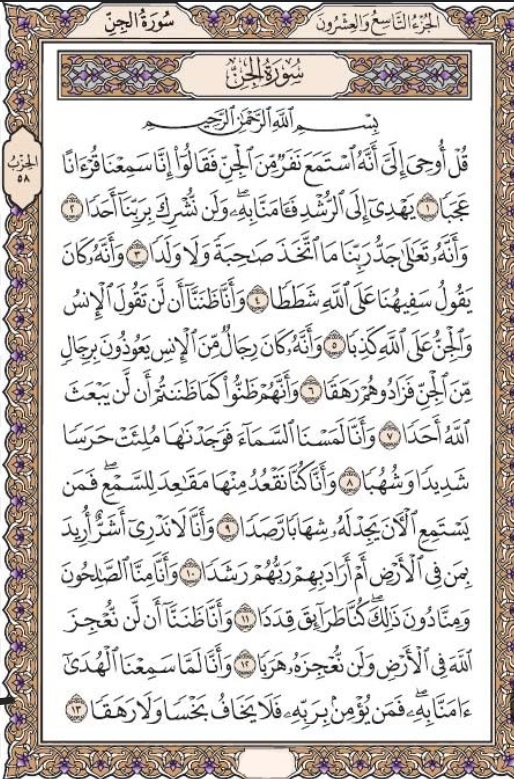 سُورَةُ الجِنِّ
الجُزْءُ التَّاسِعُ وَالعِشْرُونَ
سُورَةُ الجِنِّ
بِسْمِ ٱللَّهِ ٱلرَّحْمَٰنِ ٱلرَّحِيمِ
الحِزْبُ
٥٨
قُلْ أُوحِيَ إِلَيَّ أَنَّهُ ٱسْتَمَعَ نَفَرٌ مِّنَ ٱلْجِنِّ فَقَالُوٓا۟ إِنَّا سَمِعْنَا قُرْءَانًا
عَجَبًا ١ يَهْدِىٓ إِلَى ٱلرُّشْدِ فَـَٔامَنَّا بِهِۦ وَلَن نُّشْرِكَ بِرَبِّنَآ أَحَدًا ٢
وَأَنَّهُۥ تَعَٰلَىٰ جَدُّ رَبِّنَا مَا ٱتَّخَذَ صَٰحِبَةً وَلَا وَلَدًا ٣ وَأَنَّهُۥ كَانَ
يَقُولُ سَفِيهُنَا عَلَى ٱللَّهِ شَطَطًا ٤ وَأَنَّا ظَنَنَّآ أَن لَّن تَقُولَ ٱلْإِنسُ
وَٱلْجِنُّ عَلَى ٱللَّهِ كَذِبًا ٥ وَأَنَّهُۥ كَانَ رِجَالٌ مِّنَ ٱلْإِنسِ يَعُوذُونَ بِرِجَالٍ
مِّنَ ٱلْجِنِّ فَزَادُوهُمْ رَهَقًا ٦ وَأَنَّهُمْ ظَنُّوا۟ كَمَا ظَنَنتُمْ أَن لَّن يَبْعَثَ
ٱللَّهُ أَحَدًا ٧ وَأَنَّا لَمَسْنَا ٱلسَّمَآءَ فَوَجَدْنَٰهَا مُلِئَتْ حَرَسًا
شَدِيدًا وَشُهُبًا ٨ وَأَنَّا كُنَّا نَقْعُدُ مِنْهَا مَقَٰعِدَ لِلسَّمْعِ ۖ فَمَن
يَسْتَمِعِ ٱلْـَٔانَ يَجِدْ لَهُۥ شِهَابًا رَّصَدًا ٩ وَأَنَّا لَا نَدْرِىٓ أَشَرٌّ أُرِيدَ
بِمَن فِى ٱلْأَرْضِ أَمْ أَرَادَ بِهِمْ رَبُّهُمْ رَشَدًا ١٠ وَأَنَّا مِنَّا ٱلصَّٰلِحُونَ
وَمِنَّا دُونَ ذَٰلِكَ ۖ كُنَّا طَرَآئِقَ قِدَدًا ١١ وَأَنَّا ظَنَنَّآ أَن لَّن نُّعْجِزَ
ٱللَّهَ فِى ٱلْأَرْضِ وَلَن نُّعْجِزَهُۥ هَرَبًا ١٢ وَأَنَّا لَمَّا سَمِعْنَا ٱلْهُدَىٰٓ
ءَامَنَّا بِهِۦ ۖ فَمَن يُؤْمِنۢ بِرَبِّهِۦ فَلَا يَخَافُ بَخْسًا وَلَا رَهَقًا ١٣